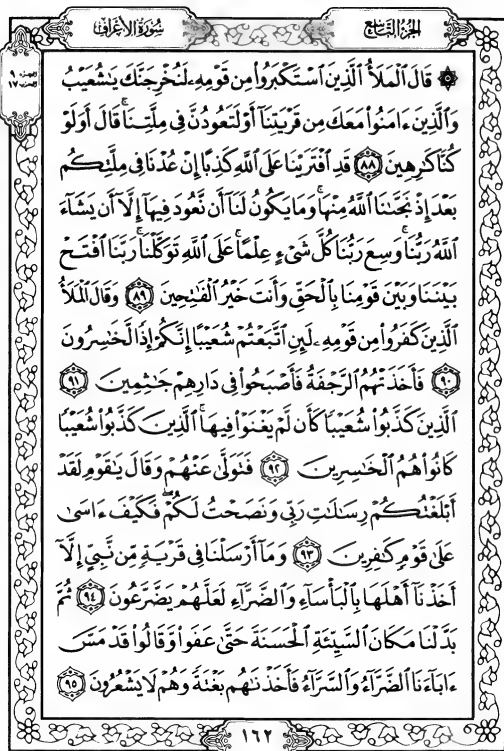 سُورَةُ الأَعْرَافِ
الجُزْءُ التَّاسِعُ
الجزء ٩
الحزب ١٧
۞ قَالَ ٱلْمَلَأُ ٱلَّذِينَ ٱسْتَكْبَرُوا۟ مِن قَوْمِهِۦ لَنُخْرِجَنَّكَ يَٰشُعَيْبُ
وَٱلَّذِينَ ءَامَنُوا۟ مَعَكَ مِن قَرْيَتِنَآ أَوْ لَتَعُودُنَّ فِى مِلَّتِنَا ۚ قَالَ أَوَلَوْ
كُنَّا كَٰرِهِينَ ﴿٨٨﴾ قَدِ ٱفْتَرَيْنَا عَلَى ٱللَّهِ كَذِبًا إِنْ عُدْنَا فِى مِلَّتِكُم
بَعْدَ إِذْ نَجَّىٰنَا ٱللَّهُ مِنْهَا ۚ وَمَا يَكُونُ لَنَآ أَن نَّعُودَ فِيهَآ إِلَّآ أَن يَشَآءَ
ٱللَّهُ رَبُّنَا ۚ وَسِعَ رَبُّنَا كُلَّ شَىْءٍ عِلْمًا ۚ عَلَى ٱللَّهِ تَوَكَّلْنَا ۚ رَبَّنَا ٱفْتَحْ
بَيْنَنَا وَبَيْنَ قَوْمِنَا بِٱلْحَقِّ وَأَنتَ خَيْرُ ٱلْفَٰتِحِينَ ﴿٨٩﴾ وَقَالَ ٱلْمَلَأُ
ٱلَّذِينَ كَفَرُوا۟ مِن قَوْمِهِۦ لَئِنِ ٱتَّبَعْتُمْ شُعَيْبًا إِنَّكُمْ إِذًا لَّخَٰسِرُونَ
﴿٩٠﴾ فَأَخَذَتْهُمُ ٱلرَّجْفَةُ فَأَصْبَحُوا۟ فِى دَارِهِمْ جَٰثِمِينَ ﴿٩١﴾
ٱلَّذِينَ كَذَّبُوا۟ شُعَيْبًا كَأَن لَّمْ يَغْنَوْا۟ فِيهَا ۚ ٱلَّذِينَ كَذَّبُوا۟ شُعَيْبًا
كَانُوا۟ هُمُ ٱلْخَٰسِرِينَ ﴿٩٢﴾ فَتَوَلَّىٰ عَنْهُمْ وَقَالَ يَٰقَوْمِ لَقَدْ
أَبْلَغْتُكُمْ رِسَٰلَٰتِ رَبِّى وَنَصَحْتُ لَكُمْ ۖ فَكَيْفَ ءَاسَىٰ
عَلَىٰ قَوْمٍ كَٰفِرِينَ ﴿٩٣﴾ وَمَآ أَرْسَلْنَا فِى قَرْيَةٍ مِّن نَّبِىٍّ إِلَّآ
أَخَذْنَآ أَهْلَهَا بِٱلْبَأْسَآءِ وَٱلضَّرَّآءِ لَعَلَّهُمْ يَضَّرَّعُونَ ﴿٩٤﴾ ثُمَّ
بَدَّلْنَا مَكَانَ ٱلسَّيِّئَةِ ٱلْحَسَنَةَ حَتَّىٰ عَفَوا۟ وَّقَالُوا۟ قَدْ مَسَّ
ءَابَآءَنَا ٱلضَّرَّآءُ وَٱلسَّرَّآءُ فَأَخَذْنَٰهُم بَغْتَةً وَهُمْ لَا يَشْعُرُونَ ﴿٩٥﴾
١٦٢